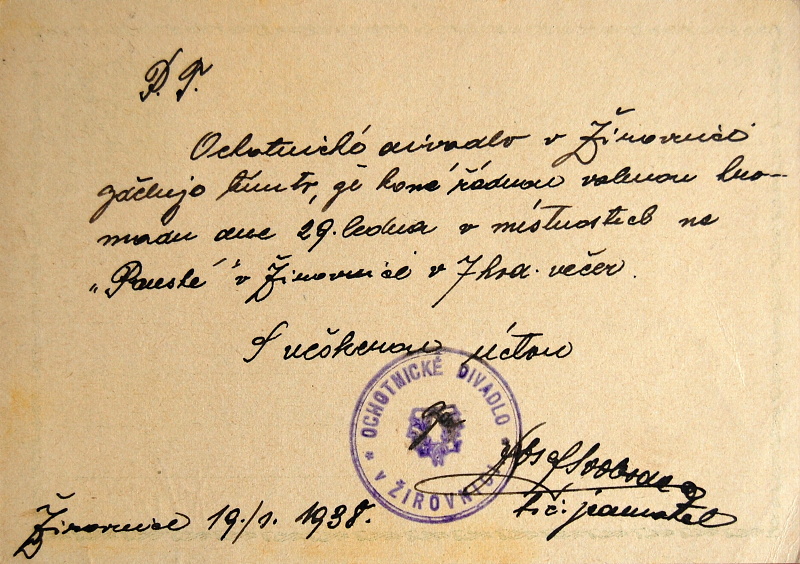 P. T.
Ochotnické divadlo v Žirovnici
že koná řádnou valnou hro-
madu dne 29. ledna v místnostech na
" v Žirovnici v 7 hod. večer.
S veškerou úctou
* OCHOTNICKÉ DIVADLO *
v ŽIROVNICI
za
Josef Svoboda
t. č. jednatel
Žirovnice 19./1. 1938.